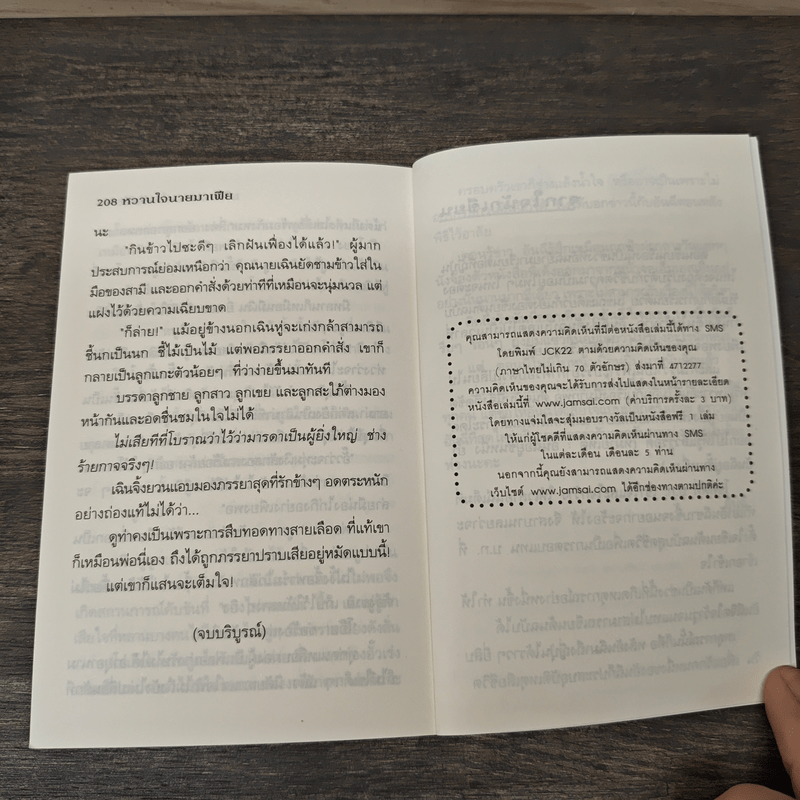 208 หวานใจนายมาเฟีย
นะ
"กินข้าวไปซะดีๆ เลิกฝันเฟื่องได้แล้ว!" ผู้มาก
ประสบการณ์ย่อมเหนือกว่า คุณนายเฉินยัดชามข้าวใส่ใน
มือของสามี และออกคำสั่งด้วยท่าทีที่เหมือนจะนุ่มนวล แต่
แฝงไว้ด้วยความเฉียบขาด
"ก็ล่าย!" แม้อยู่ข้างนอกเฉินหู่จะเก่งกล้าสามารถ
ชี้นกเป็นนก ชี้ไม้เป็นไม้ แต่พอภรรยาออกคำสั่ง เขาก็
กลายเป็นลูกแกะตัวน้อยๆ ที่ว่าง่ายขึ้นมาทันที
บรรดาลูกชาย ลูกสาว ลูกเขย และลูกสะใภ้ต่างมอง
หน้ากันและอดชื่นชมในใจไม่ได้
ไม่เสียทีที่โบราณว่าไว้ว่ามารดาเป็นผู้ยิ่งใหญ่ ช่าง
ร้ายกาจจริงๆ!
เฉินจิ้งยวนแอบมองภรรยาสุดที่รักข้างๆ อดตระหนัก
อย่างถ่องแท้ไม่ได้ว่า...
ดูท่าคงเป็นเพราะการสืบทอดทางสายเลือด ที่แท้เขา
ก็เหมือนพ่อนี่เอง ถึงได้ถูกภรรยาปราบเสียอยู่หมัดแบบนี้!
แต่เขาก็แสนจะเต็มใจ!
(จบบริบูรณ์)
คุณสามารถแสดงความคิดเห็นที่มีต่อหนังสือเล่มนี้ได้ทาง SMS
โดยพิมพ์ JCK22 ตามด้วยความคิดเห็นของคุณ
(ภาษาไทยไม่เกิน 70 ตัวอักษร) ส่งมาที่ 4712277
ความคิดเห็นของคุณจะได้รับการส่งไปแสดงในหน้ารายละเอียด
หนังสือเล่มนี้ที่ www.jamsai.com (ค่าบริการครั้งละ 3 บาท)
โดยทางแจ่มใสจะสุ่มมอบรางวัลเป็นหนังสือฟรี 1 เล่ม
ให้แก่ผู้โชคดีที่แสดงความคิดเห็นผ่านทาง SMS
ในแต่ละเดือน เดือนละ 5 ท่าน
นอกจากนี้คุณยังสามารถแสดงความคิดเห็นผ่านทาง
เว็บไซต์ www.jamsai.com ได้อีกช่องทางตามปกติค่ะ